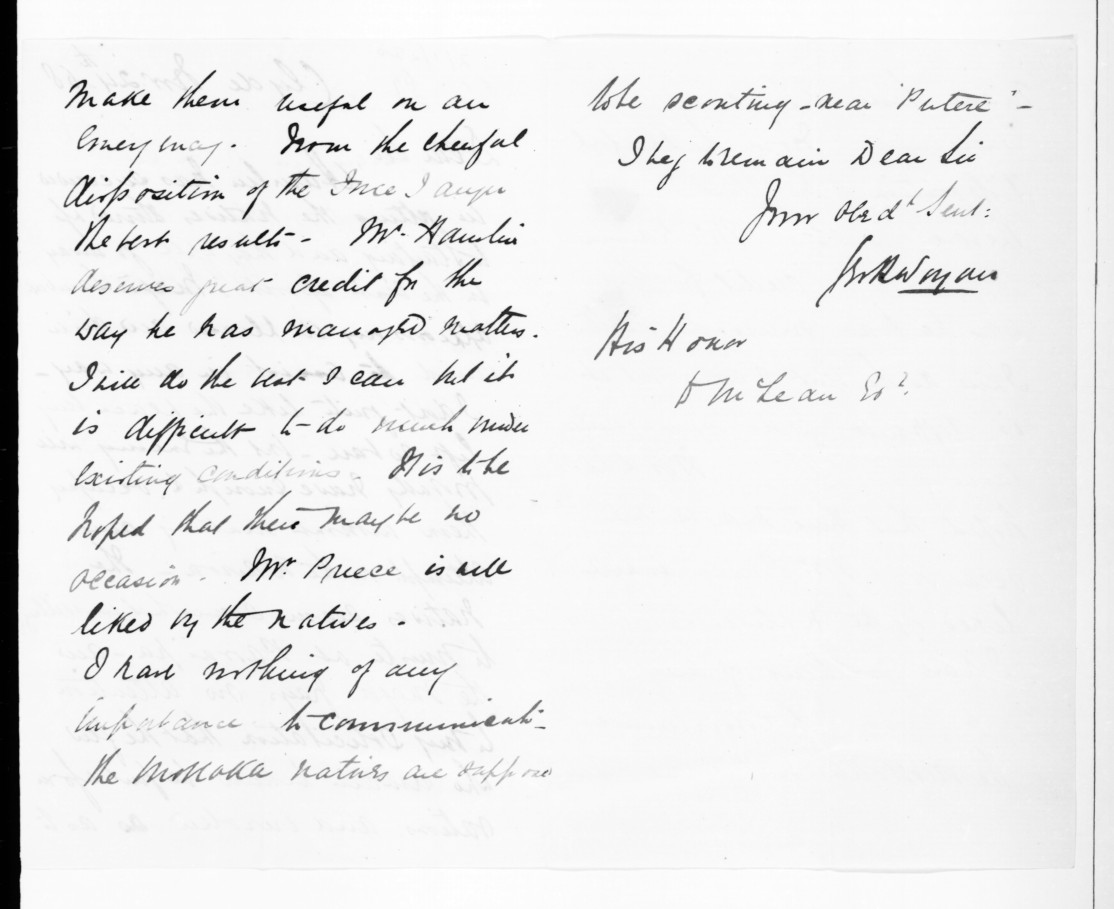 make them useful on an
Emergency. From the cheerful
disposition of the Force I augur
the best results - Mr. Hamlin
deserves great credit for the
way he has managed matters.
I will do the best I can but it
is difficult to do much under
existing conditions. It is to be
hoped that there may be no
occasion. Mr Preece is well
liked by the natives.
I have nothing of any
importance to communicate -
the Mohaka natives are suppose
to be scouting - near 'Putere' -
I beg to remain Dear Sir
Your Obedt Sevt:
His Honor
D McLean Esq.